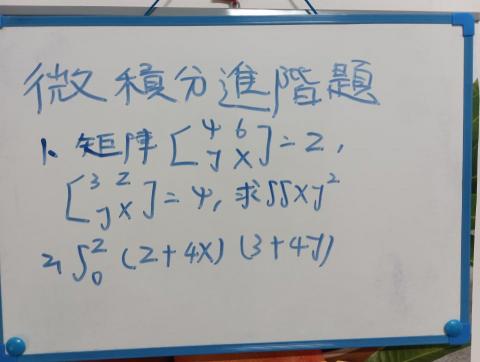 微積分進階題
1、矩陣 [4 6 y x]=2,
[3 2 y x]=4, 求∬xy²
2, ∫₀² (2+4x)(3+4y)